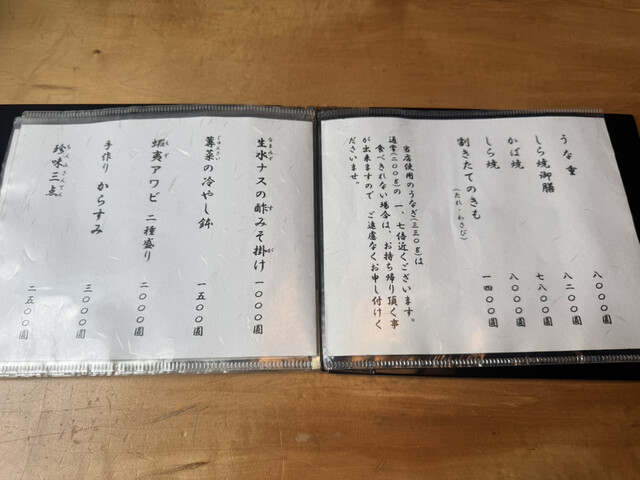 うな重 八〇〇〇圓
しら焼御膳 八二〇〇圓
かば焼 七八〇〇圓
しら焼 八〇〇〇圓
割きたてのきも(たれ・わさび) 一四〇〇圓
当店使用のうなぎ(三三〇g)は
通常(二〇〇g)の 一、七倍近くございます。
食べきれない場合は、お持ち帰り頂く事
が出来ますので ご遠慮なくお申し付けく
ださいませ。
生水ナスの酢みそ掛け 一〇〇〇圓
蓴菜の冷やし鉢 一五〇〇圓
蝦夷アワビ 二種盛り 二〇〇〇圓
手作り からすみ 三〇〇〇圓
珍味三点 二五〇〇圓